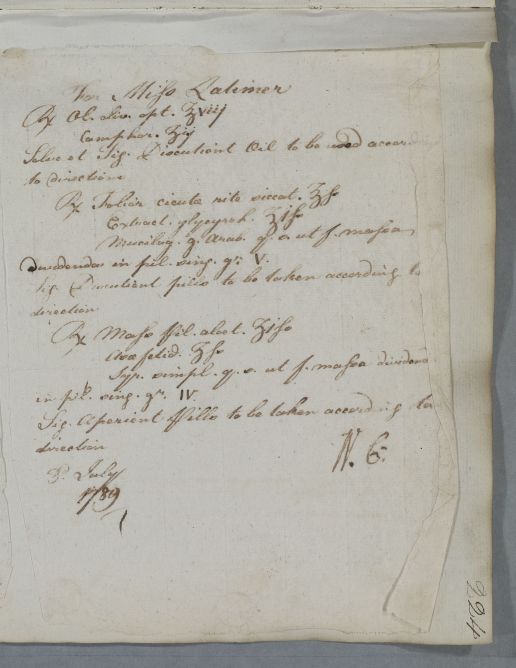 For Miss Latimer
℞ Ol. Liv. opt. ℥viij
Camphor. ℥ij
Solve et Sig. Discutient Oil to be used accord
to direction
℞ Folior cicutæ rite siccat. ʒſs
Extract. glycyrrh. ʒiſs
Mucilag. g. Arab. q. s. ut f. massa
dividenda in pil. sing. gr. V.
Sig. Discutient pills to be taken according to
direction
℞ Mass Pil. aloet. ʒiſs
Asæ fetid. ʒſs
Syr. simpl. q. s. ut f. massa dividend
in pil. sing. gr. IV.
Sig. Aperient Pills to be taken according to
direction
N. C.
July
1789
224